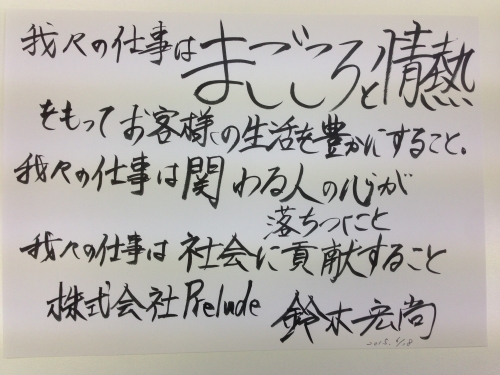 我々の仕事はまごころと情熱
をもってお客様の生活を豊かにすること。
我々の仕事は関わる人の心が
落ちつくこと
我々の仕事は社会に貢献すること
株式会社Prelude 鈴木宏尚
2015. 6/18